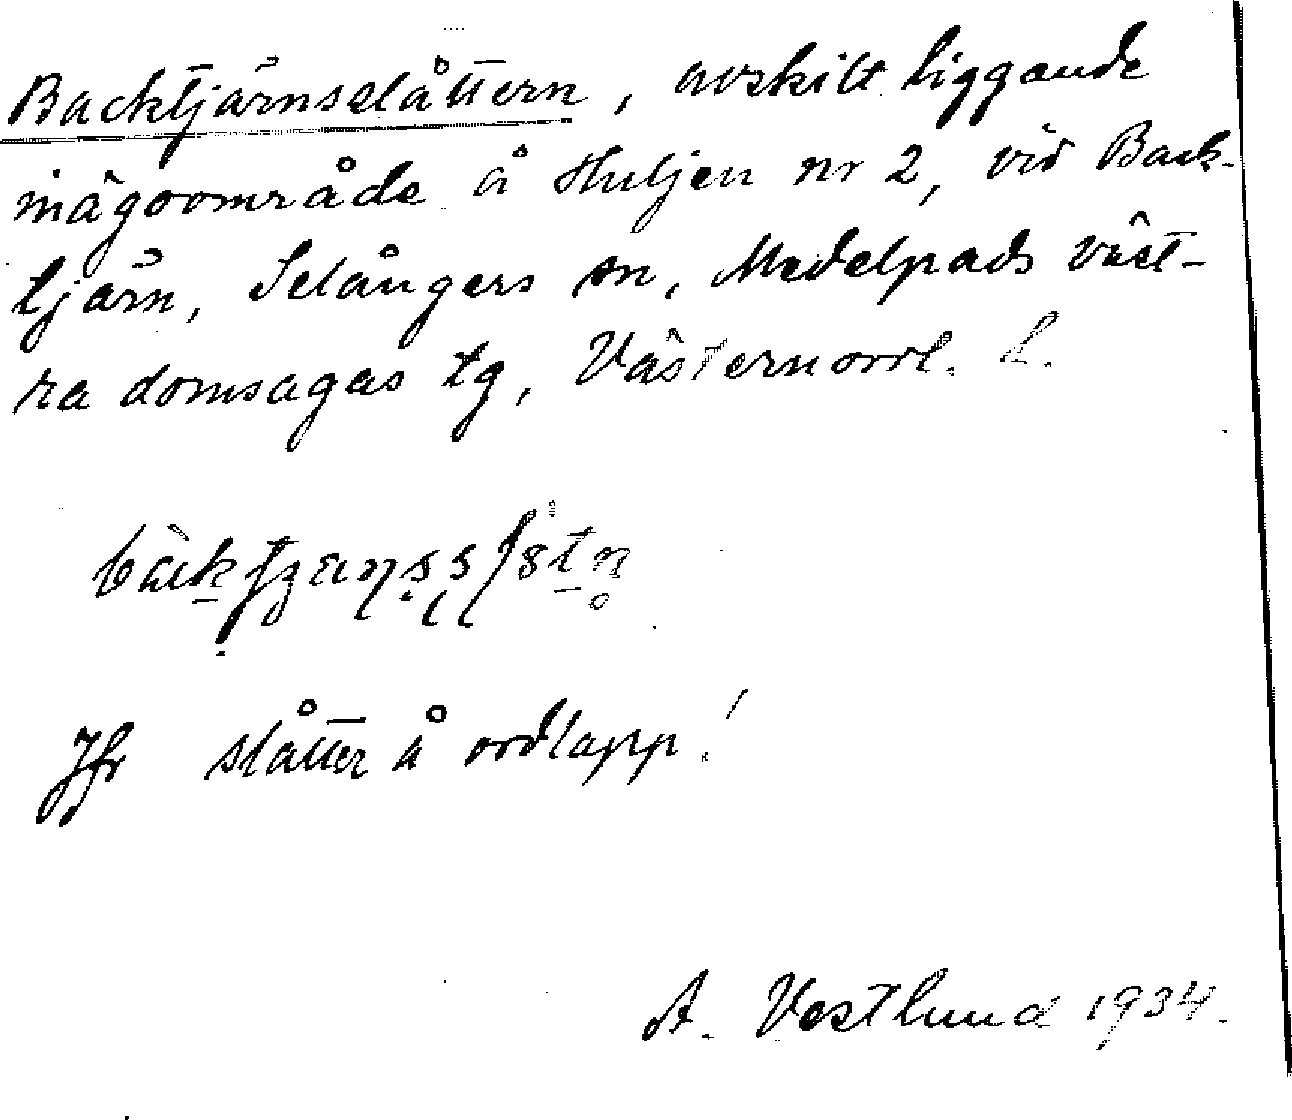 Backtjärnsslåttern, avskilt liggande
inägoområde å Huljen nr 2, vid Back-
tjärn, Selångers sn, Medelpads väst-
ra domsagas tg, Västernorrl. l.
Jfr slåtter å ordlapp!
A. Vestlund 1934.